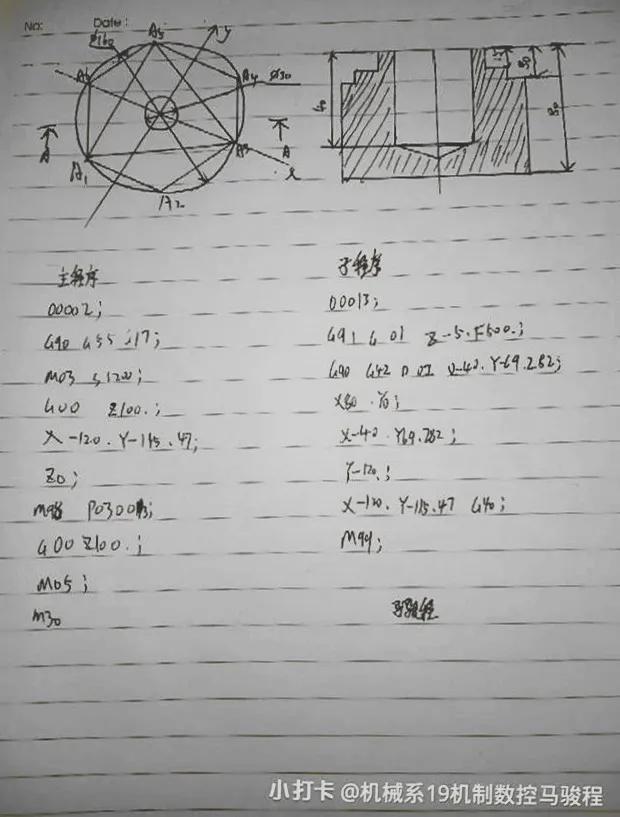 No:
Date :
ø160
A5
y
A6
A4
ø30
A
A
A1
A3
x
A2
主程序
O0002;
G90 G55 G17;
M03 S1200;
G00 Z100.;
X-120. Y-115.47;
Z0;
M98 P030013;
G00 Z100.;
M05;
M30
子程序
O0013;
G91 G01 Z-5. F500.;
G90 G42 D01 X-40. Y-69.282;
X80. Y0;
X-40. Y69.282;
Y-120.;
X-120. Y-115.47 G40;
M99;
马骏程
小打卡 @机械系19机制数控马骏程